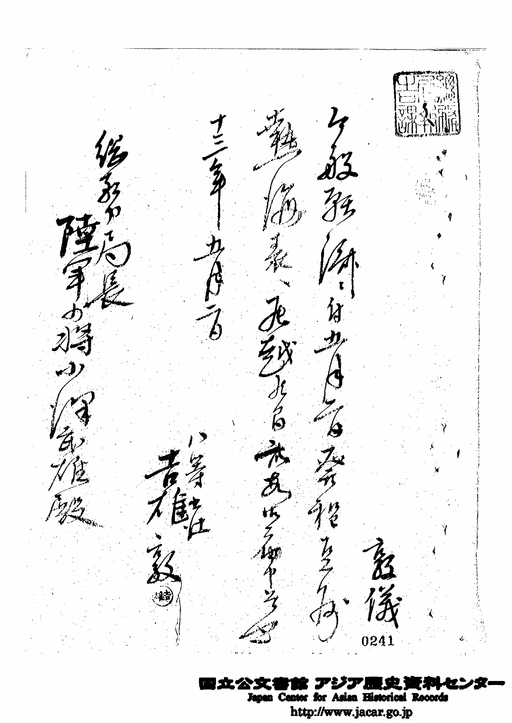 敦儀
今般願済ニ付五月二日発程豆州
熱海表ヘ罷越候間此段御届申候也
十三年五月二日
八等出仕
吉雄敦
総務局長
陸軍少将小沢武雄殿
0241
国立公文書館 アジア歴史資料センター
Japan Center for Asian Historical Records
http://www.jacar.go.jp